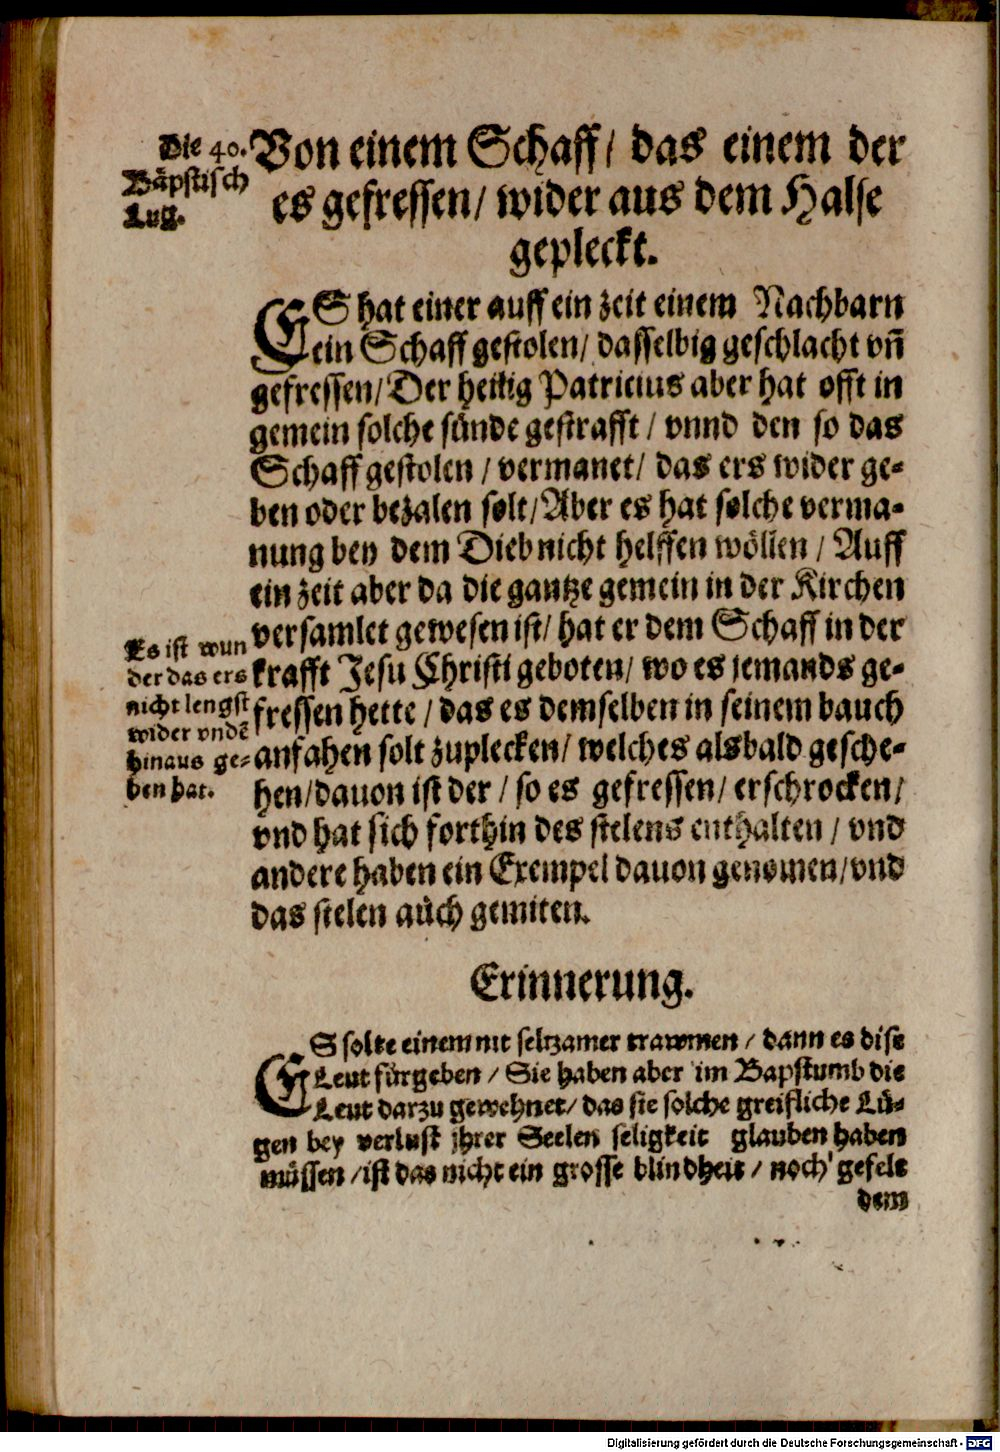 Die 40.
Bäpstisch
Lug.
Von einem Schaff/ das einem der
es gefressen/ wider aus dem Halse
gepleckt.
ES hat einer auff ein zeit einem Nachbarn
ein Schaff gestolen/ dasselbig geschlacht vñ
gefressen/ Der heilig Patricius aber hat offt in
gemein solche sünde gestrafft / vnnd den so das
Schaff gestolen / vermanet/ das ers wider ge-
ben oder bezalen solt/ Aber es hat solche verma-
nung bey dem Dieb nicht helffen wöllen / Auff
ein zeit aber da die gantze gemein in der Kirchen
versamlet gewesen ist/ hat er dem Schaff in der
krafft Jesu Christi geboten/ wo es jemands ge-
fressen hette / das es demselben in seinem bauch
anfahen solt zuplecken/ welches alsbald gesche-
hen/ dauon ist der / so es gefressen/ erschrocken/
vnd hat sich forthin des stelens enthalten / vnd
andere haben ein Exempel dauon genomen/ vnd
das stelen aůch gemiten.
Es ist wun
der das ers
nicht lengst
wider vndẽ
hinaus ge-
ben hat.
Erinnerung.
ES solte einem nit seltzamer trawmen / dann es dise
Leut fürgeben / Sie haben aber im Bapstumb die
Leut darzu gewehnet/ das sie solche greifliche Lü-
gen bey verlust jhrer Seelen seligkeit glauben haben
müssen / ist das nicht ein grosse blindheit / noch gefelt
dem
Digitalisierung gefördert durch die Deutsche Forschungsgemeinschaft - DFG